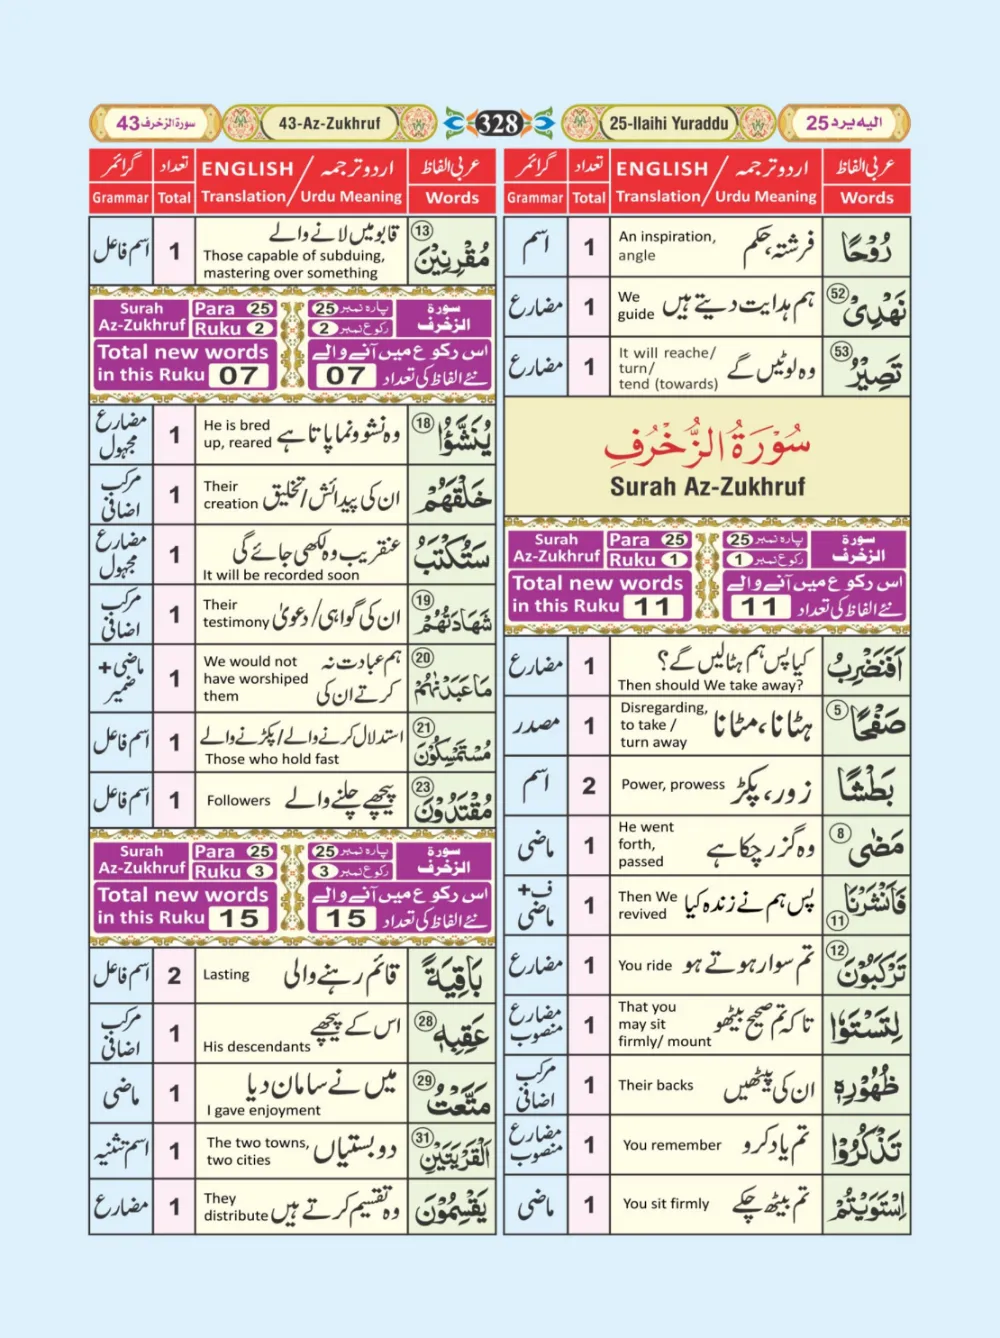 سورة الزخرف 43
43-Az-Zukhruf
328
25-Ilaihi Yuraddu
اليه يرد 25
عربی الفاظ
اردو ترجمہ / ENGLISH
تعداد
گرائمر
Words
Translation / Urdu Meaning
Total
Grammar
رُوْحًا
فرشتہ، حکم
An inspiration,
angle
1
اسم
52
نَهْدِیْ
ہم ہدایت دیتے ہیں
We
guide
1
مضارع
53
تَصِيْرُ
وہ لوٹیں گے
It will reache/
turn/
tend (towards)
1
مضارع
سُوْرَةُ الزُّخْرُفِ
Surah Az-Zukhruf
Surah
Az-Zukhruf
Para 25
Ruku 1
پارہ نمبر 25
رکوع نمبر 1
سورة
الزخرف
Total new words
in this Ruku 11
اس رکوع میں آنے والے
نئے الفاظ کی تعداد 11
اَفَنَضْرِبُ
کیا پس ہم ہٹالیں گے؟
Then should We take away?
1
مضارع
5
صَفْحًا
ہٹانا، مٹانا
Disregarding,
to take /
turn away
1
مصدر
بَطْشًا
زور، پکڑ
Power, prowess
2
اسم
8
مَضٰى
وہ گزر چکا ہے
He went
forth,
passed
1
ماضی
11
فَاَنْشَرْنَا
پس ہم نے زندہ کیا
Then We
revived
1
ف+
ماضی
12
تَرْكَبُوْنَ
تم سوار ہوتے ہو
You ride
1
مضارع
لِتَسْتَوٗا
تاکہ تم صحیح بیٹھو
That you
may sit
firmly/ mount
1
مضارع
منصوب
ظُهُوْرِهٖ
ان کی پیٹھیں
Their backs
1
مرکب
اضافی
تَذْكُرُوْا
تم یاد کرو
You remember
1
مضارع
منصوب
اِسْتَوَيْتُمْ
تم بیٹھ چکے
You sit firmly
1
ماضی
عربی الفاظ
اردو ترجمہ / ENGLISH
تعداد
گرائمر
Words
Translation / Urdu Meaning
Total
Grammar
13
مُقْرِنِيْنَ
قابو میں لانے والے
Those capable of subduing,
mastering over something
1
اسم فاعل
Surah
Az-Zukhruf
Para 25
Ruku 2
پارہ نمبر 25
رکوع نمبر 2
سورة
الزخرف
Total new words
in this Ruku 07
اس رکوع میں آنے والے
نئے الفاظ کی تعداد 07
18
يُنَشَّؤُا
وہ نشوونما پاتا ہے
He is bred
up, reared
1
مضارع
مجہول
خَلْقَهُمْ
ان کی پیدائش/تخلیق
Their
creation
1
مرکب
اضافی
سَتُكْتَبُ
عنقریب وہ لکھی جائے گی
It will be recorded soon
1
مضارع
مجہول
19
شَهَادَتُهُمْ
ان کی گواہی/دعویٰ
Their
testimony
1
مرکب
اضافی
20
مَا عَبَدْنٰهُمْ
ہم عبادت نہ
کرتے ان کی
We would not
have worshiped
them
1
ماضی+
ضمیر
21
مُسْتَمْسِكُوْنَ
استدلال کرنے والے/پکڑنے والے
Those who hold fast
1
اسم فاعل
23
مُقْتَدُوْنَ
پیچھے چلنے والے
Followers
1
اسم فاعل
Surah
Az-Zukhruf
Para 25
Ruku 3
پارہ نمبر 25
رکوع نمبر 3
سورة
الزخرف
Total new words
in this Ruku 15
اس رکوع میں آنے والے
نئے الفاظ کی تعداد 15
بَاقِيَةً
قائم رہنے والی
Lasting
2
اسم فاعل
28
عَقِبِهٖ
اس کے پیچھے
His descendants
1
مرکب
اضافی
29
مَتَّعْتُ
میں نے سامان دیا
I gave enjoyment
1
ماضی
31
الْقَرْيَتَيْنِ
دو بستیاں
The two towns,
two cities
1
اسم تثنیہ
يَقْسِمُوْنَ
وہ تقسیم کرتے ہیں
They
distribute
1
مضارع